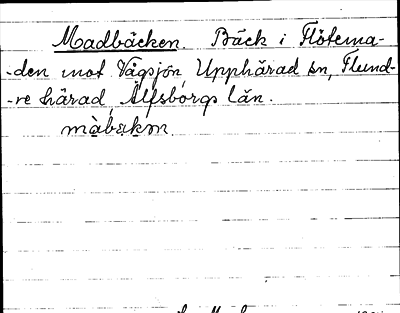 Madbäcken. Bäck i Flötema-
-den mot Vågsjön, Upphärad sn, Flund-
-re härad, Älfsborgs län.
màbækɒn.